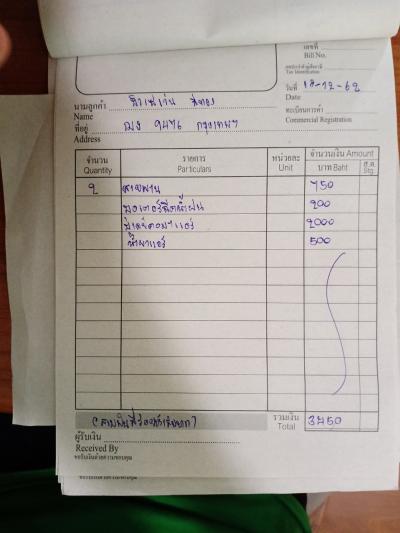 เลขที่
Bill No.
เลขประจำตัวผู้เสียภาษี
Tax Identification
วันที่ 18-12-62
Date
ทะเบียนการค้า
Commercial Registration
นามลูกค้า
Name
ที่อยู่ ฌง 9476 กรุงเทพฯ
Address
จำนวน รายการ หน่วยละ จำนวนเงิน Amount
Quantity Particulars Unit บาท Baht ส.ต. Stg.
2 สายพาน 750
มอเตอร์ฉีดน้ำฝน 200
2000
น้ำยาแอร์ 500
รวมเงิน 3450
Total
ผู้รับเงิน
Received By
ขอรับเงินด้วยความขอบคุณ
ขอรับเงินด้วยความขอบคุณ